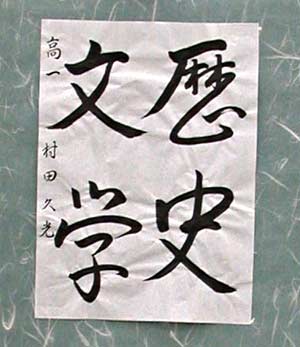 歴史
文学
高一 村田久光